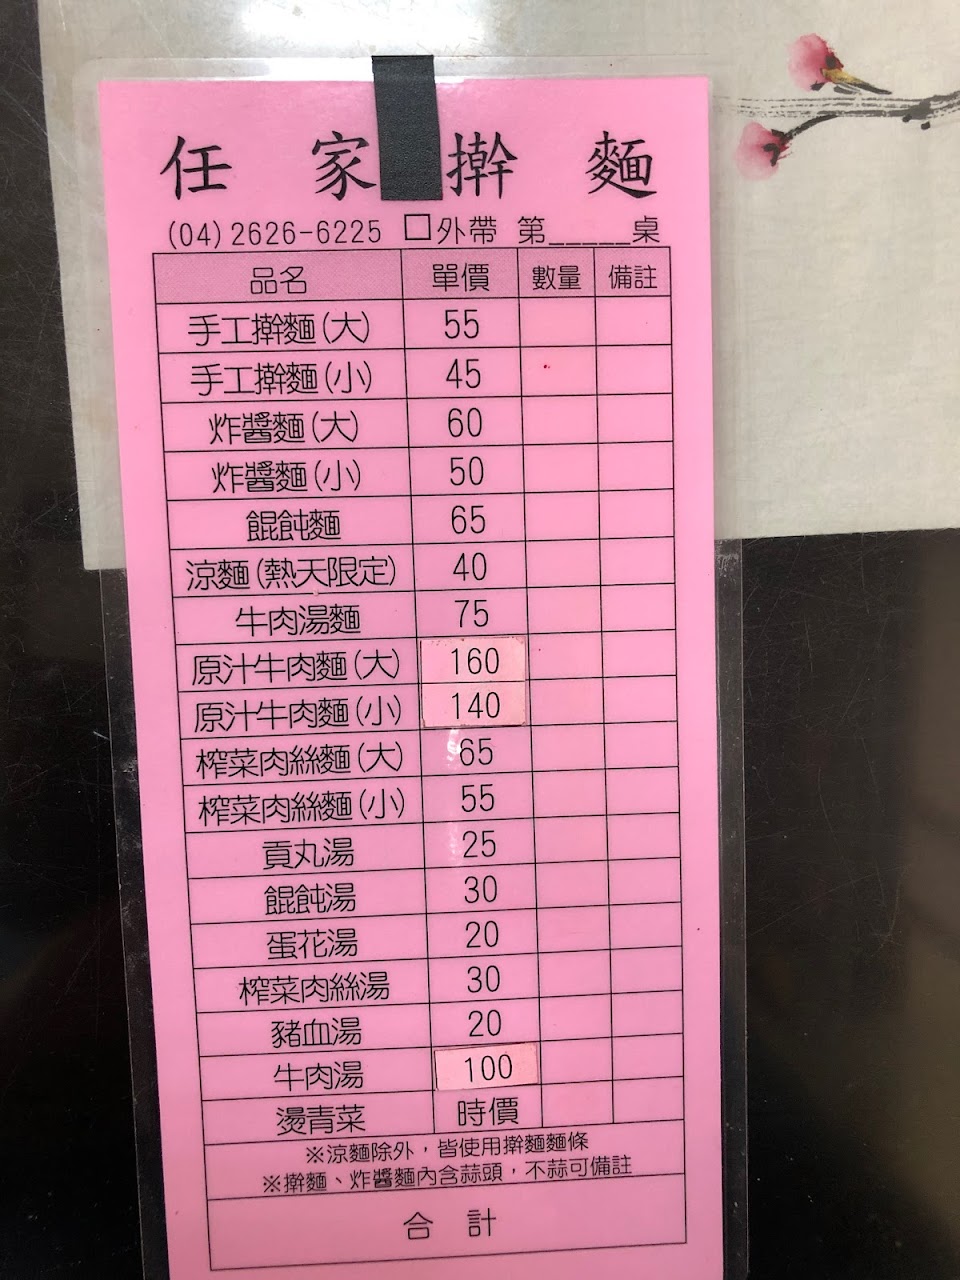 任家擀麵
(04)2626-6225 □外帶 第_____桌
品名 單價 數量 備註
手工擀麵(大) 55
手工擀麵(小) 45
炸醬麵(大) 60
炸醬麵(小) 50
餛飩麵 65
涼麵(熱天限定) 40
牛肉湯麵 75
原汁牛肉麵(大) 160
原汁牛肉麵(小) 140
榨菜肉絲麵(大) 65
榨菜肉絲麵(小) 55
貢丸湯 25
餛飩湯 30
蛋花湯 20
榨菜肉絲湯 30
豬血湯 20
牛肉湯 100
燙青菜 時價
※涼麵除外，皆使用擀麵麵條
※擀麵、炸醬麵內含蒜頭，不蒜可備註
合計